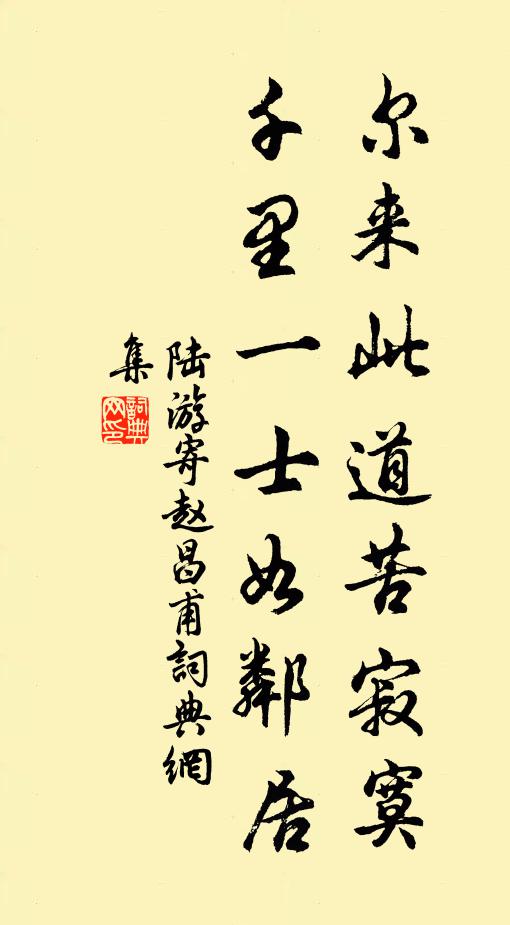 尔来此道苦寂寞
千里一士如鄰居
陆游寄赵昌甫詞典網
集
詞典网印